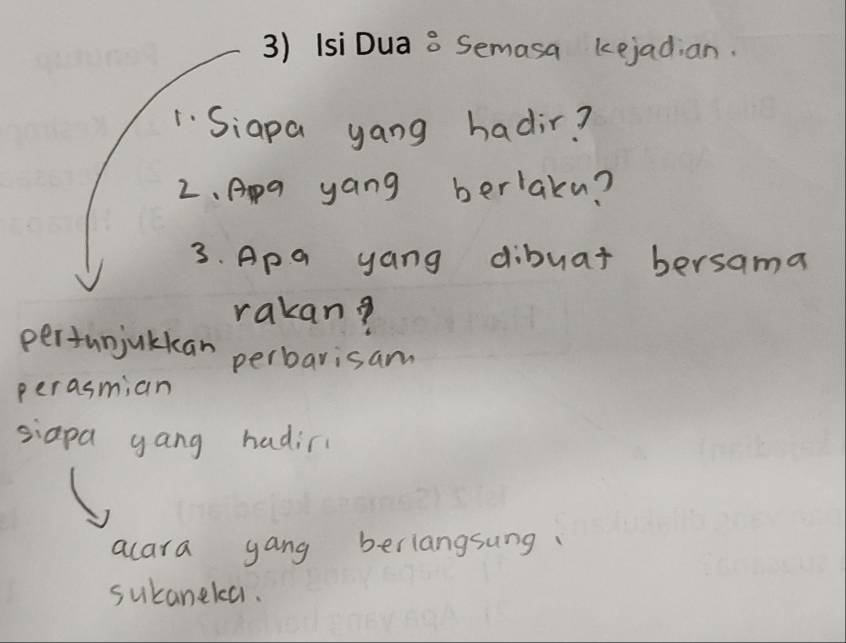 3) Isi Dua : Semasa kejadian.
1. Siapa yang hadir?
2. Apa yang berlaku?
3. Apa yang dibuat bersama
rakan?
pertunjukkan perbarisan
perasmian
siapa yang hadir
acara yang berlangsung.
sukaneka.